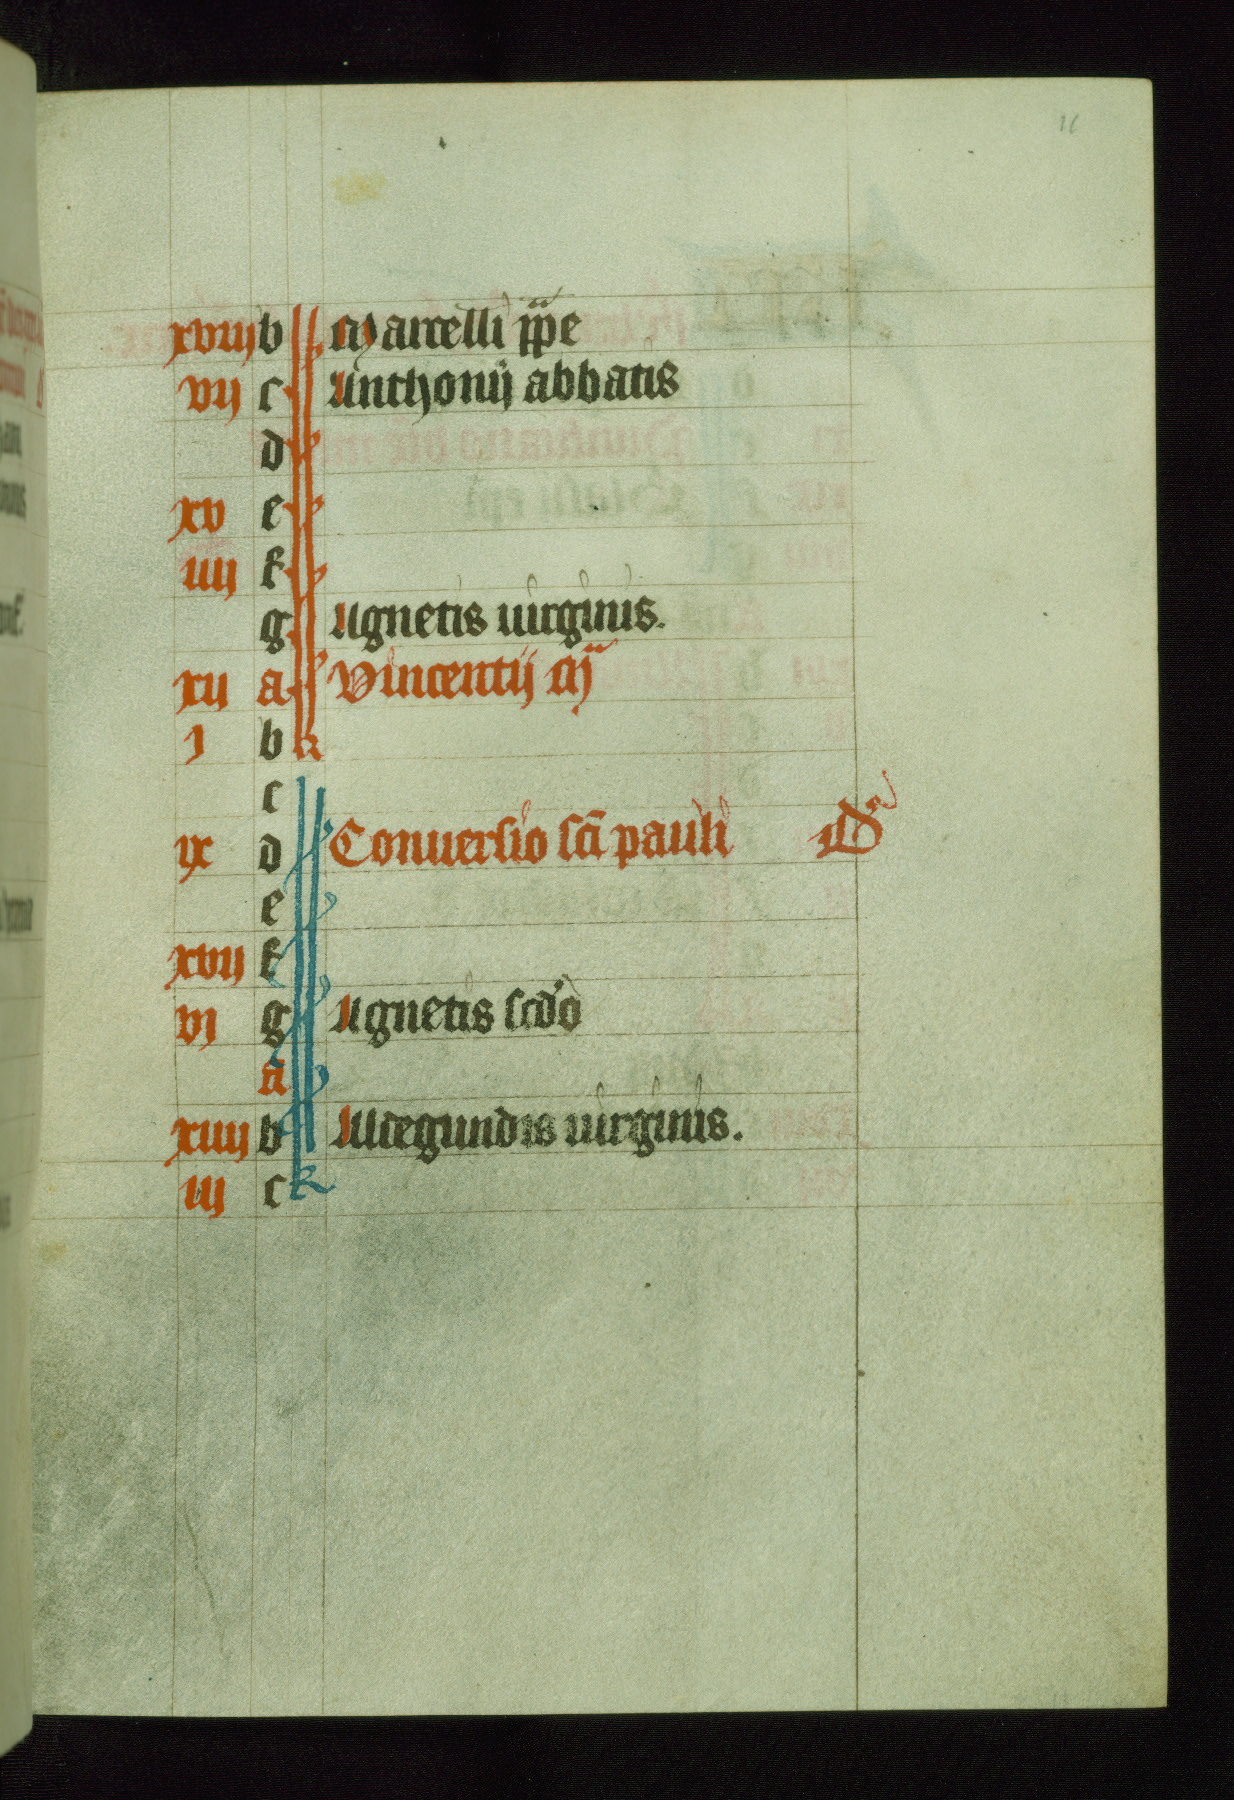 xviij b Marcelli ppe
vij c Anthonij abbatis
d
xv e
iiij f
g Agnetis uirginis.
xij a Vincentij mr
j b k
c
ix d Conuersio scī pauli D
e
xvij f
vj g Agnetis scdo
a
xiiij b Aldegundis uirginis.
iij c k